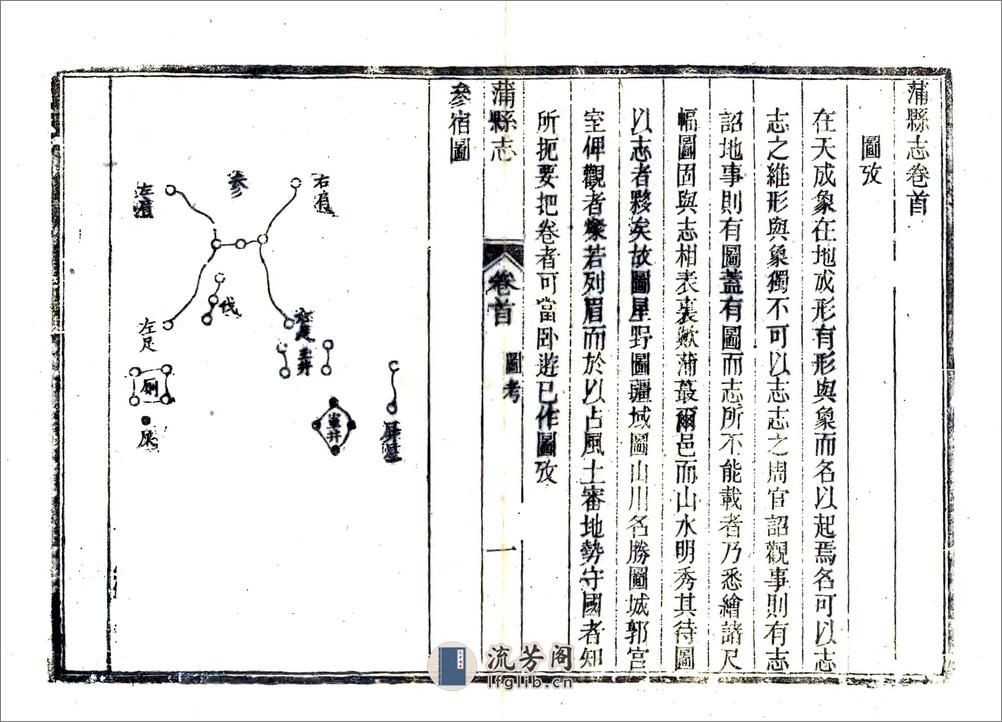 蒲縣志卷首
圖攷
在天成象在地成形有形與象而名以起焉名可以志
志之維形與象獨不可以志志之周官詔觀事則有志
詔地事則有圖蓋有圖而志所不能載者乃悉繪諸尺
幅圖固與志相表裏歟蒲蕞爾邑而山水明秀其待圖
以志者夥矣故圖星野圖疆域圖山川名勝圖城郭宮
室俾觀者粲若列眉而於以占風土審地勢守國者知
所扼要把卷者可當臥遊已作圖攷
蒲縣志
卷首
圖考
一
參宿圖
右肩
參
左肩
伐
左足
玉井
屏星
軍井
廁
屎
流芳阁
lfglib.cn